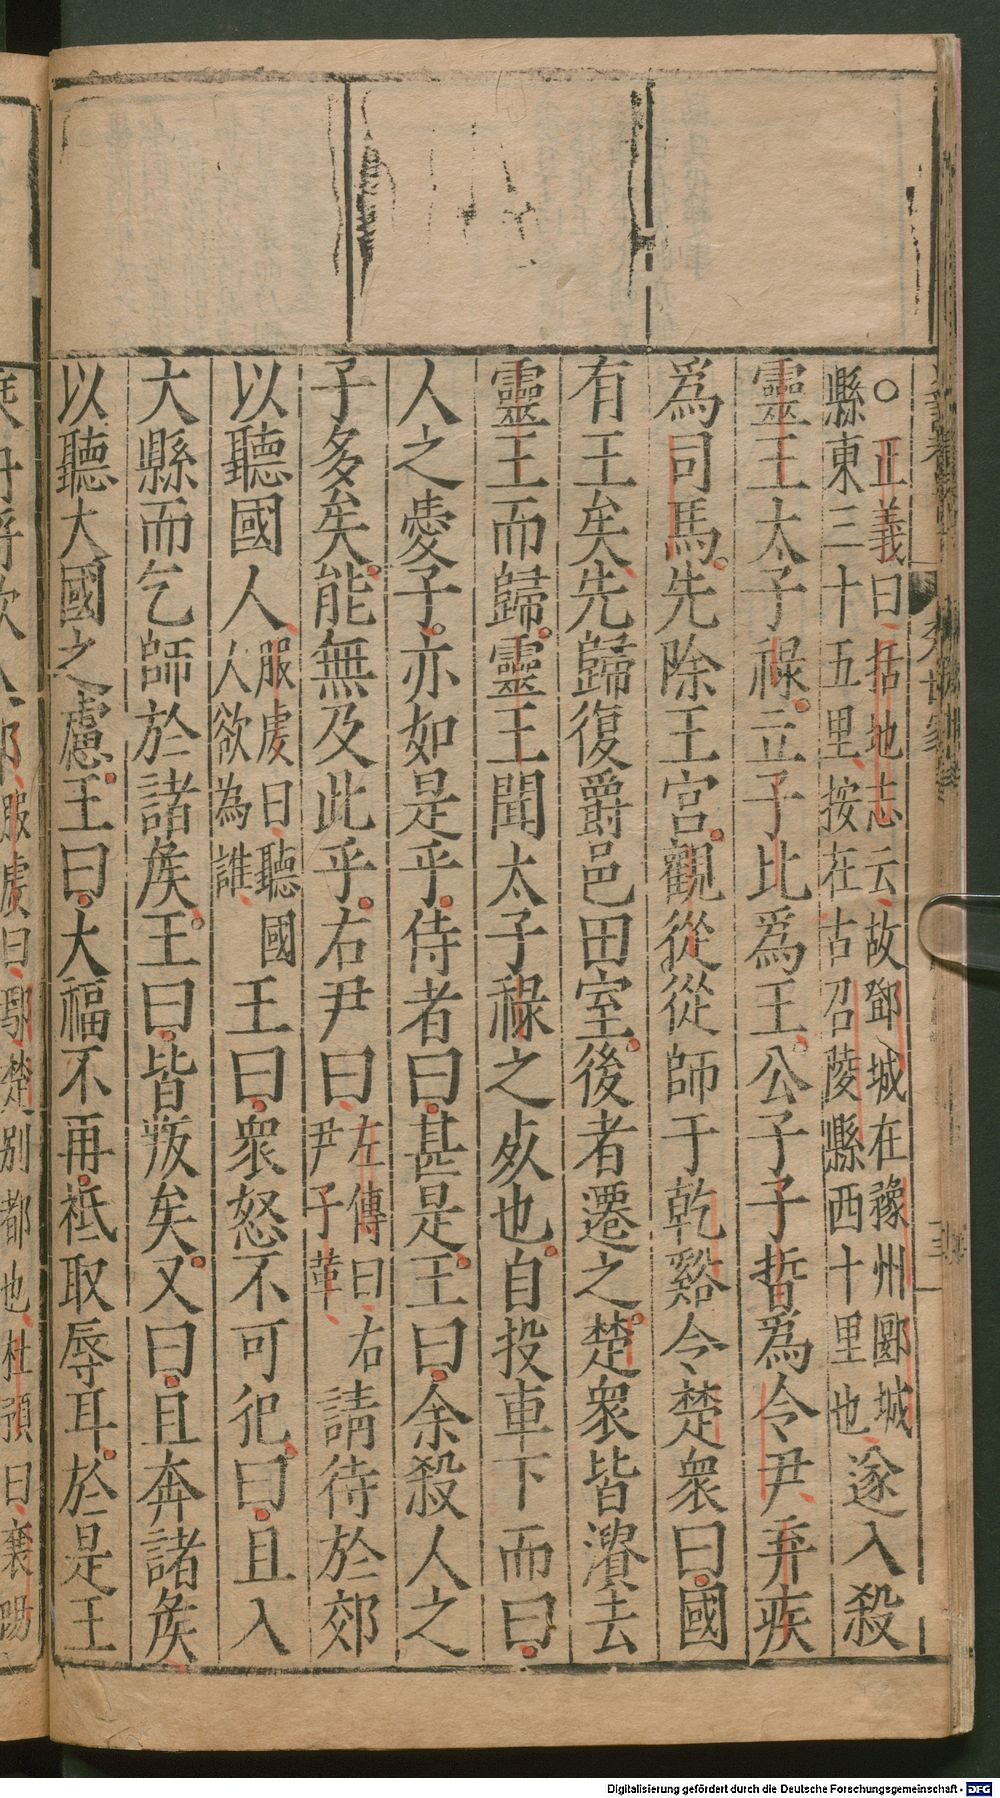 ○正義曰括地志云故鄧城在豫州郾城
縣東三十五里按在古召陵縣西十里也遂入殺
靈王太子祿立子比爲王公子子晳爲令尹弃疾
爲司馬先除王宮觀從從師于乾谿令楚衆曰國
有王矣先歸復爵邑田室後者遷之楚衆皆潰去
靈王而歸靈王聞太子祿之死也自投車下而曰
人之愛子亦如是乎侍者曰甚是王曰余殺人之
子多矣能無及此乎右尹曰左傳曰右尹子革請待於郊
以聽國人服虔曰聽國人欲為誰王曰衆怒不可犯曰且入
大縣而乞師於諸矦王曰皆叛矣又曰且奔諸矦
以聽大國之慮王曰大福不再祗取辱耳於是王
服虔曰鄢楚別都也杜預曰襄
Digitalisierung gefördert durch die Deutsche Forschungsgemeinschaft - DFG